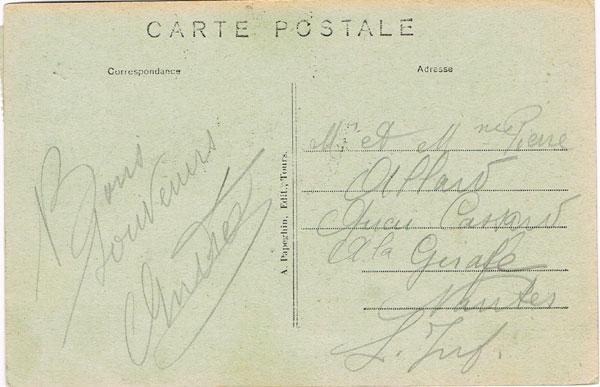 CARTE POSTALE
Correspondance
Adresse
Bons
Souvenirs
A. Papeghin, Edit., Tours.
Mr et Mme Pierre
Allard
Quai Cassard
A la Girafe
Nantes
L. Inf.